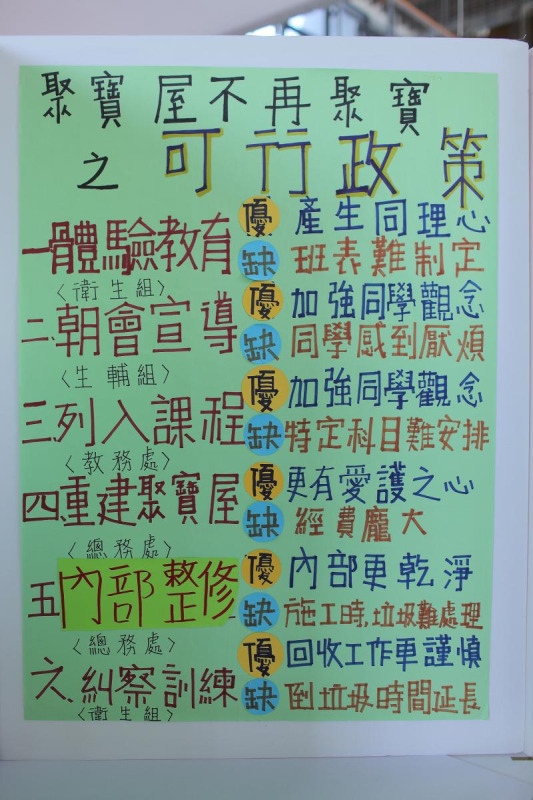 聚寶屋不再聚寶
之可行政策
一體驗教育
優 產生同理心
缺 班表難制定
〈衛生組〉
二.朝會宣導
優 加強同學觀念
缺 同學感到厭煩
〈生輔組〉
三.列入課程
優 加強同學觀念
缺 特定科目難安排
〈教務處〉
四.重建聚寶屋
優 更有愛護之心
缺 經費龐大
〈總務處〉
五內部整修
優 內部更乾淨
缺 施工時,垃圾難處理
〈總務處〉
六.糾察訓練
優 回收工作更謹慎
缺 倒垃圾時間延長
〈衛生組〉